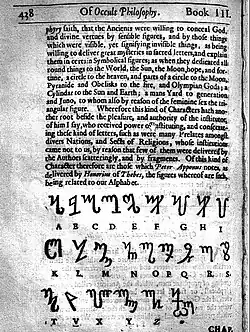 438 Of Occult Philosophy. Book III.
phyry saith, that the Ancients were willing to conceal God,
and divine vertues by sensible figures, and by those things
which were visible, yet signifying invisible things, as being
willing to deliver great mysteries in sacred letters, and explain
them in certain Symbolical figures; as when they dedicated all
round things to the World, the Sun, the Moon, hope, and for-
tune, a circle to the heaven, and parts of a circle to the Moon,
Pyramide and Obelisks to the fire, and Olympian Gods; a
Cylindar to the Sun and Earth; a mans Yard to generation
and Juno, to whom also by reason of the feminine sex the tri-
angular figure. Wherefore this kind of Characters hath ano-
ther root beside the pleasure, and authority of the institutor,
of him I say, who received power of instituting, and consecra-
ting these kind of letters, such as were many Prelates amongst
divers Nations, and Sects of Religions, whose institutions
came not to us, by reason that few of them were delivered by
the Authors scatteringly, and by fragments. Of this kind of
Character therefore are those which Peter Apponus notes, as
delivered by Honorius of Thebes, the figures whereof are such,
being related to our Alphabet.
A B C D E F G H I
K L M N O P Q R S
T V X Y Z
CHAP.